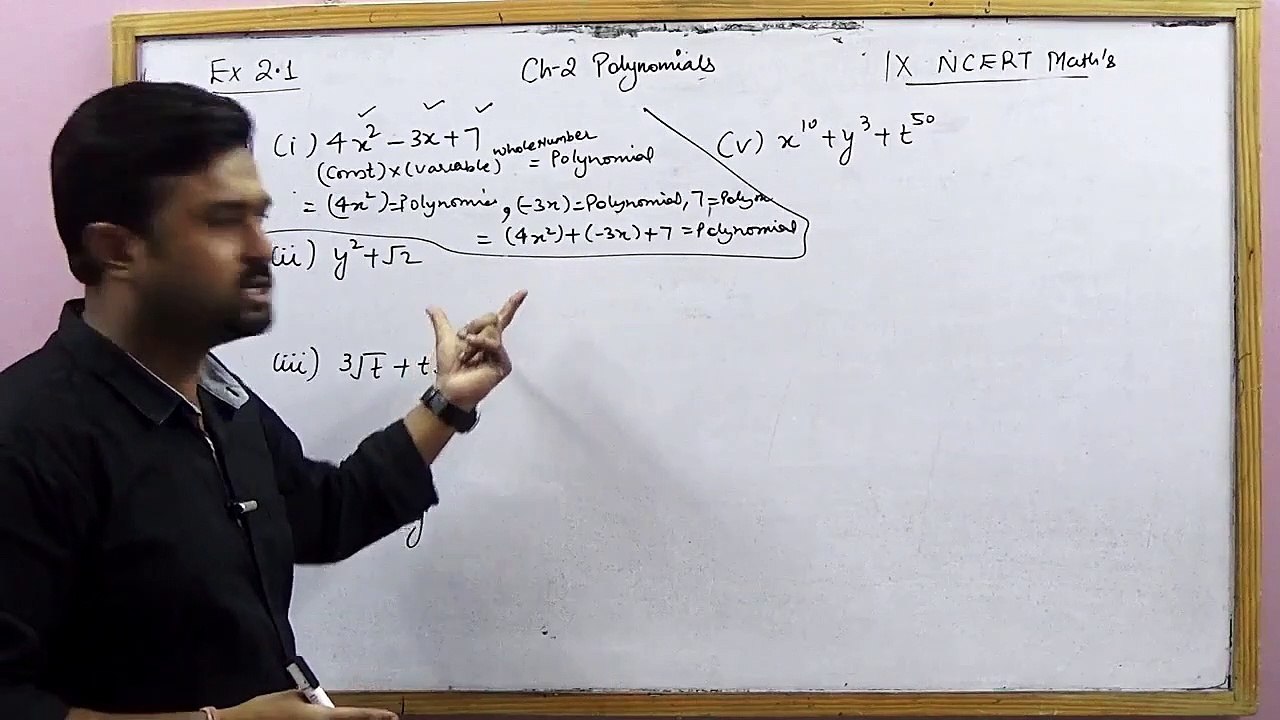 Ex 2.1
Ch-2 Polynomials
IX NCERT Math's
(i) 4x² - 3x + 7
(Const) x (variable)^whole Number = Polynomial
= (4x²) = Polynomi , (-3x) = Polynomial, 7 = Polyn
= (4x²) + (-3x) + 7 = Polynomial
(ii) y² + √2
(iii) 3√t + t
y
(v) x¹⁰ + y³ + t⁵⁰